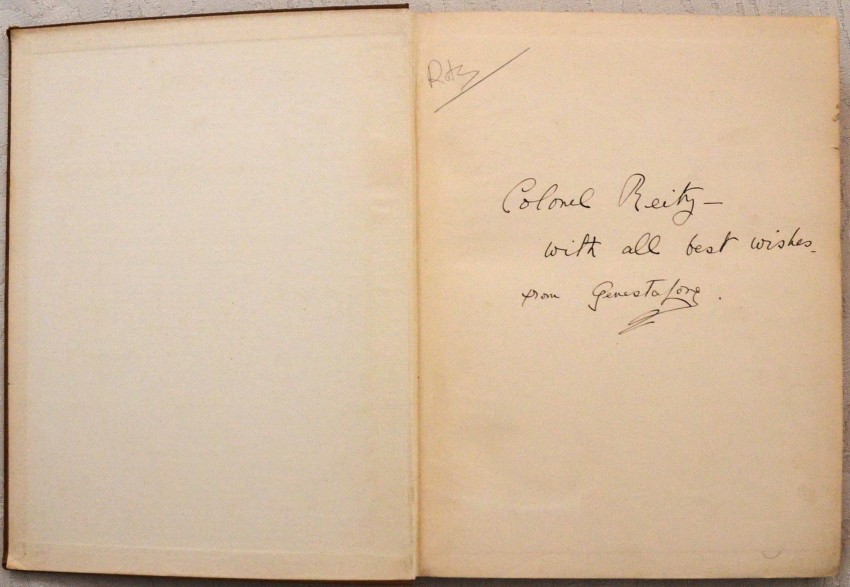 Colonel Reitz —
with all best wishes.
from Genesta Long.